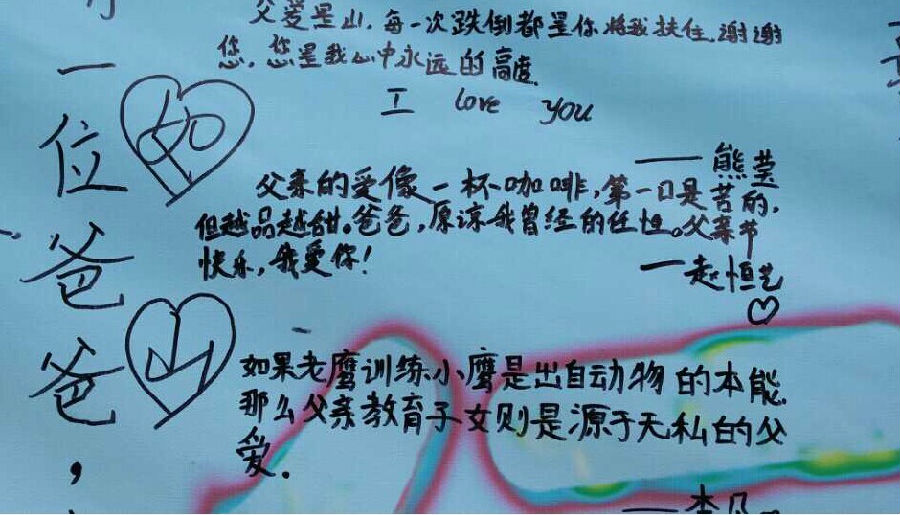 父爱是山,每一次跌倒都是你将我扶住.谢谢
您,您是我心中永远的高度.
I love you
——熊莹
父亲的爱像一杯咖啡,第一口是苦的,
但越品越甜。爸爸,原谅我曾经的任性。父亲节
快乐,我爱你!
—赵恒艺
如果老鹰训练小鹰是出自动物的本能.
那么父亲教育子女则是源于无私的父
爱.
一位爸爸,
如
山